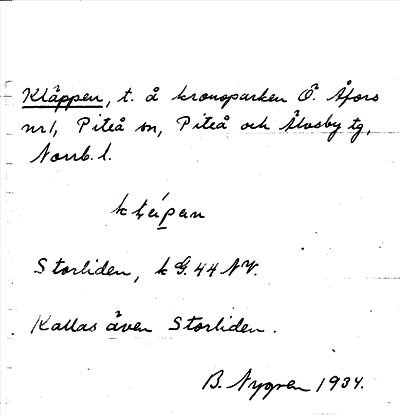 Kläppen, t. å kronoparken Ö. Åfors
nr1, Piteå sn, Piteå och Älvsby tg,
Norrb. l.
Storliden, k G.44 NV.
Kallas även Storliden.
B. Nygren 1934.